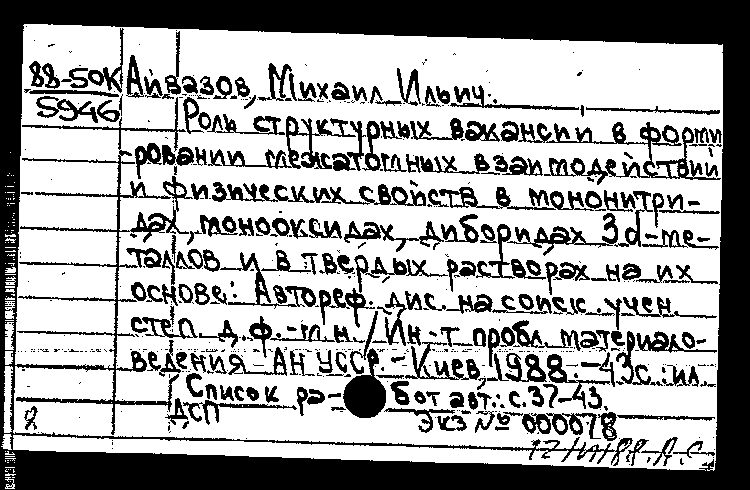 88-50к Айвазов, Михаил Ильич.
5946 Роль структурных вакансии в форми
-ровании межатомных взаимодействий
и физических свойств в мононитри-
дах, монооксидах, диборидах 3d-ме-
таллов и в твердых растворах на их
основе: Автореф. дис. на соиск. учен.
степ. д.ф.-м.н. / Ин-т пробл. материало-
ведения АН УССР. - Киев, 1988. - 43с.: ил.
Список работ авт.: с.37-43.
ДСП Экз № 000078